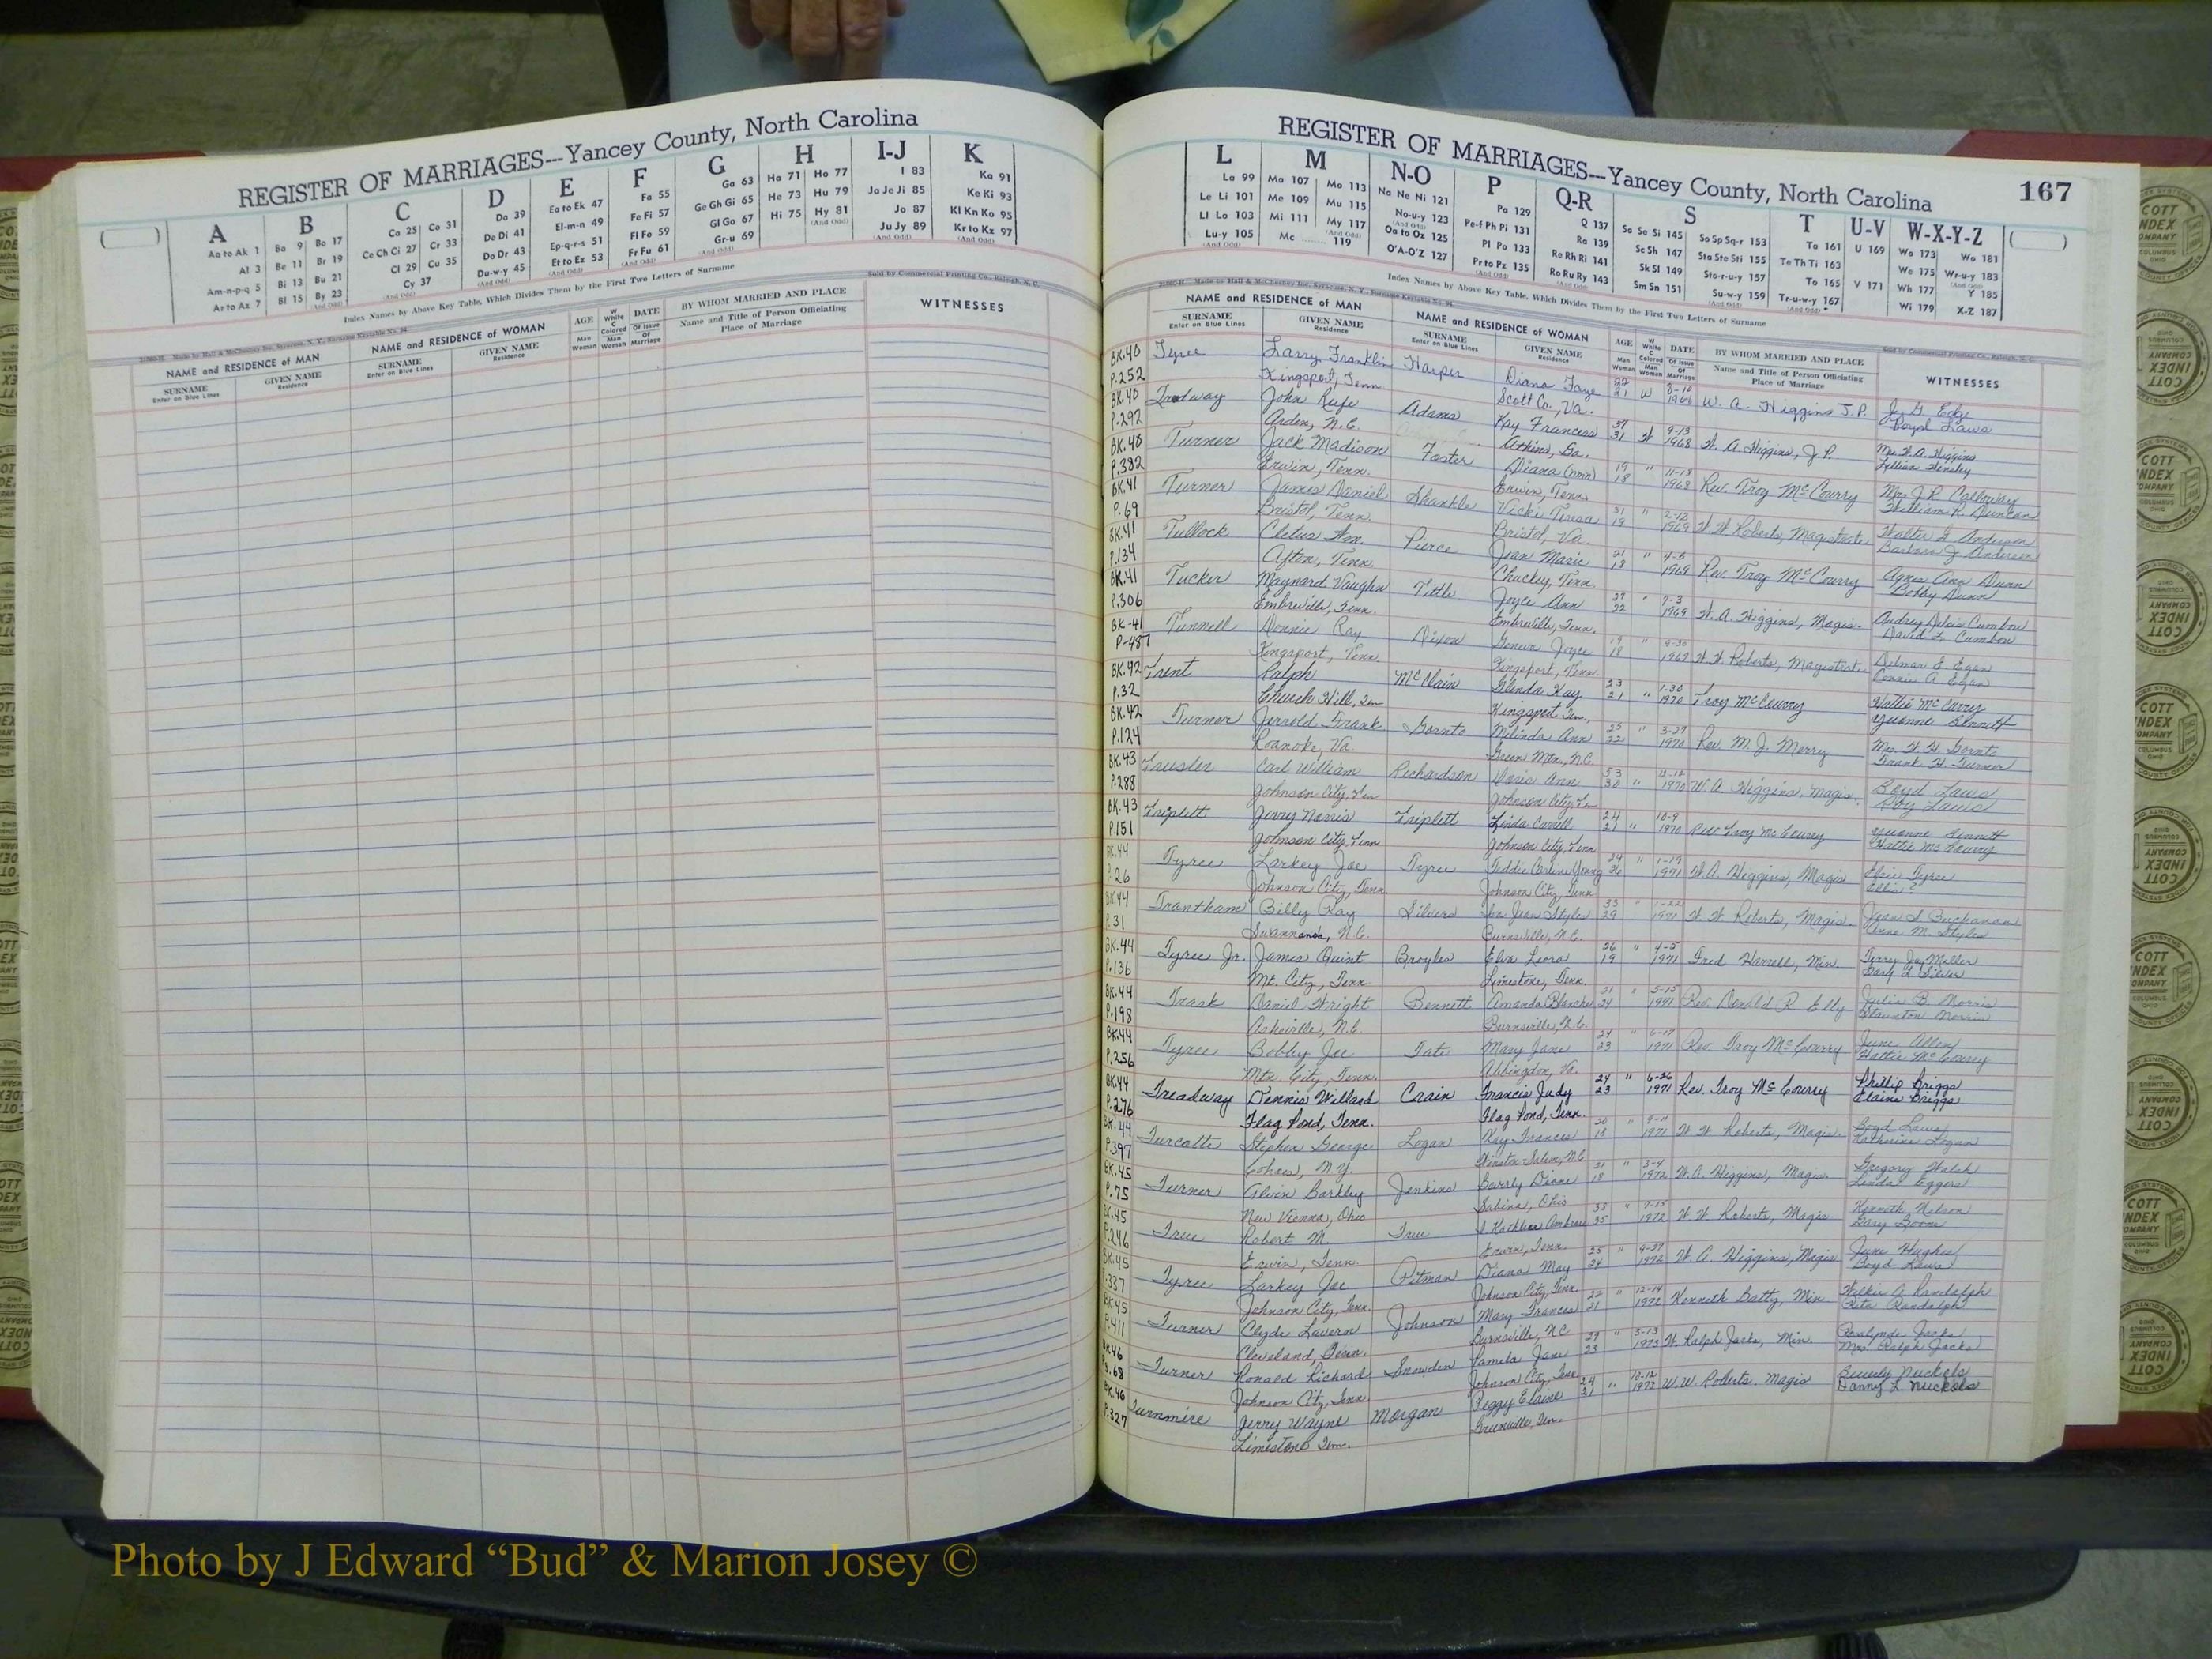 REGISTER OF MARRIAGES---Yancey County, North Carolina
A B C D E F G H I-J K
Aa to Ak 1 Ba 9 Bo 17 Ca 25 Co 31 Da 39 Ea to Ek 47 Fa 55 Ga 63 Ha 71 Ho 77 I 83 Ka 91
Al 3 Be 11 Br 19 Ce Ch Ci 27 Cr 33 De Di 41 El-m-n 49 Fe Fi 57 Ge Gh Gi 65 He 73 Hu 79 Ja Je Ji 85 Ke Ki 93
Am-n-p-q 5 Bi 13 Bu 21 Cl 29 Cu 35 Do Dr 43 Ep-q-r-s 51 Fl Fo 59 Gl Go 67 Hi 75 Hy 81 Jo 87 Kl Kn Ko 95
Ar to Az 7 Bl 15 By 23 Cy 37 Du-w-y 45 Et to Ez 53 Fr Fu 61 Gr-u 69 Ju Jy 89 Kr to Kz 97
Index Names by Above Key Table, Which Divides Them by the First Two Letters of Surname
Sold by Commercial Printing Co., Raleigh, N. C.
NAME and RESIDENCE of MAN
SURNAME
Enter on Blue Lines
GIVEN NAME
Residence
NAME and RESIDENCE of WOMAN
SURNAME
Enter on Blue Lines
GIVEN NAME
Residence
AGE
Man
Woman
W White C Colored
Man
Woman
DATE
Of Issue
Of Marriage
BY WHOM MARRIED AND PLACE
Name and Title of Person Officiating
Place of Marriage
WITNESSES
REGISTER OF MARRIAGES---Yancey County, North Carolina 167
L M N-O P Q-R S T U-V W-X-Y-Z
La 99 Ma 107 Mo 113 Na Ne Ni 121 Pa 129 Q 137 Sa Se Si 145 So Sp Sq-r 153 Ta 161 U 169 Wa 173 Wo 181
Le Li 101 Me 109 Mu 115 No-u-y 123 Pe-f Ph Pi 131 Ra 139 Sc Sh 147 Sta Ste Sti 155 Te Th Ti 163 V 171 We 175 Wr-u-y 183
Ll Lo 103 Mi 111 My 117 Oa to Oz 125 Pl Po 133 Re Rh Ri 141 Sk Sl 149 Sto-r-u-y 157 To 165 Wh 177 Y 185
Lu-y 105 Mc 119 O'A-O'Z 127 Pr to Pz 135 Ro Ru Ry 143 Sm Sn 151 Su-w-y 159 Tr-u-w-y 167 Wi 179 X-Z 187
Index Names by Above Key Table, Which Divides Them by the First Two Letters of Surname
NAME and RESIDENCE of MAN
SURNAME
Enter on Blue Lines
GIVEN NAME
Residence
NAME and RESIDENCE of WOMAN
SURNAME
Enter on Blue Lines
GIVEN NAME
Residence
AGE
Man
Woman
DATE
BY WHOM MARRIED AND PLACE
Name and Title of Person Officiating
Place of Marriage
WITNESSES
BK.40 Tyree Larry Franklin Harper Diana Faye 21 W 1968 W. A. Higgins J.P. J. G. Edge
P.252 Kingsport, Tenn. Scott Co., Va. Boyd Laws
BK.40 Treadway John Rufe Adams Kay Frances 37 31 W 9-13 1968 W. A. Higgins, J.P. Mrs. W. A. Higgins
P.292 Arden, N.C. Atkins, Ga. Lillian Hensley
BK.40 Turner Jack Madison Foster Diana (nmn) 19 18 " 11-13 1968 Rev. Troy McCourry Mrs. J. R. Calloway
P.382 Erwin, Tenn. Erwin, Tenn. William R. Duncan
BK.41 Turner James Daniel Shankle Vicki Teresa 21 19 " 2-12 1969 W. W. Roberts, Magistrate Walter G. Anderson
P.69 Bristol, Tenn. Bristol, Va. Barbara J. Anderson
BK.41 Tullock Cletus Wm. Pierce Joan Marie 21 18 " 4-5 1969 Rev. Troy McCourry Agnes Ann Dunn
P.134 Afton, Tenn. Chuckey, Tenn. Bobby Dunn
BK.41 Tucker Maynard Vaughn Tittle Joyce Ann 27 22 " 7-3 1969 W. A. Higgins, Magis. Audrey Cumbow
P.306 Embreville, Tenn. Embreville, Tenn. David L. Cumbow
BK-41 Tunnell Donnie Ray Dixon Geneva Joyce 19 18 " 9-30 1969 W. W. Roberts, Magistrate Delmar E. Egan
P-487 Kingsport, Tenn. Kingsport, Tenn. Connie A. Egan
BK.42 Trent Ralph McClain Glenda Kay 23 21 " 1-30 1970 Troy McCourry Hattie McCurry
P.32 Church Hill, Ten Kingsport Ten., Yvonne Bennett
BK.42 Turner Jerrold Frank Gornto Melinda Ann 25 22 " 3-27 1970 Rev. M. J. Merry Mrs. W. H. Gornto
P.124 Roanoke, Va. Green Mtn., N.C. Frank H. Turner
BK.43 Trusler Carl William Richardson Doris Ann 53 30 " 1970 W A Higgins, Magis. Boyd Laws
P.288 Johnson City, Ten Johnson City, Ten Roy Laws
BK.43 Triplett Jerry Norris Triplett Linda Carrell 24 21 " 10-9 1970 Rev Troy McCourry Yvonne Bennett
P.151 Johnson City, Tenn Johnson City, Tenn Hattie McCourry
BK.44 Tyree Larkey Joe Tyree Teddie Carline Young 24 26 " 1-19 1971 W. A. Higgins, Magis Elsie Tyree
P.26 Johnson City, Tenn Johnson City, Tenn Ellis ?
BK.44 Trantham Billy Ray Silvers Iva Jean Styles 33 29 " 1-22 1971 W. W. Roberts, Magis. Jean S Buchanan
P.31 Swannanoa, N.C. Burnsville, N.C. Anne M. Styles
BK.44 Tyree Jr. James Quint Broyles Elva Leora 26 19 " 4-5 1971 Fred Harrell, Min. Terry Jay Miller
P.136 Mt. City, Tenn Limestone, Tenn. Gary L Silver
BK.44 Trask Daniel Wright Bennett Amanda Blanche 21 24 " 5-15 1971 Rev. Donald R Elly Julia B. Morris
P.198 Asheville, N.C. Burnsville, N.C. Staunton Morris
BK.44 Tyree Bobby Joe Tate Mary Jane 24 23 " 6-19 1971 Rev. Troy McCourry June Allen
P.256 Mtn. City, Tenn. Abbingdon, Va. Hattie McCourry
BK.44 Treadway Dennis Willard Crain Francis Judy 24 23 " 6-26 1971 Rev. Troy McCourry Phillip Briggs
P.276 Flag Pond, Tenn. Flag Pond, Tenn. Elaine Briggs
BK.44 Turcotte Stephen George Logan Kay Frances 20 18 " 9-11 1971 W W Roberts, Magis. Boyd Laws
P.397 Cohoes, N.Y. Winston Salem, N.C. Katherine Logan
BK.45 Turner Alvin Barkley Jenkins Beverly Diane 21 18 " 3-4 1972 W. A. Higgins, Magis. Gregory Walsh
P.75 New Vienna, Ohio Sabina, Ohio Linda Eggers
BK.45 True Robert M. True Kathleen Ambrose 38 35 " 7-15 1972 W W Roberts, Magis Kenneth Nelson
P.246 Erwin, Tenn. Erwin, Tenn. Gary Boone
BK.45 Tyree Larkey Joe Pitman Diana May 25 24 " 9-27 1972 W. A. Higgins, Magis June Hughes
P.337 Johnson City, Tenn. Johnson City, Tenn. Boyd Laws
BK.45 Turner Clyde Lavern Johnson Mary Frances 22 21 " 12-14 1972 Kenneth Batty, Min Wilkie A. Randolph
P.411 Cleveland, Tenn. Burnsville, NC Rita Randolph
BK.46 Turner Ronald Richard Snowden Pamela Jane 29 23 " 3-13 1973 W. Ralph Jacks, Min. Rosalynde Jacks
P.68 Johnson City, Tenn. Johnson City, Tenn Mrs. Ralph Jacks
BK.46 Turnmire Jerry Wayne Morgan Peggy Elaine 24 21 " 10-12 1973 W. W. Roberts. Magis Beverly Nuckols
P.327 Limestone Ten. Greenville, Ten. Danny L. Nuckols
Photo by J Edward “Bud” & Marion Josey ©